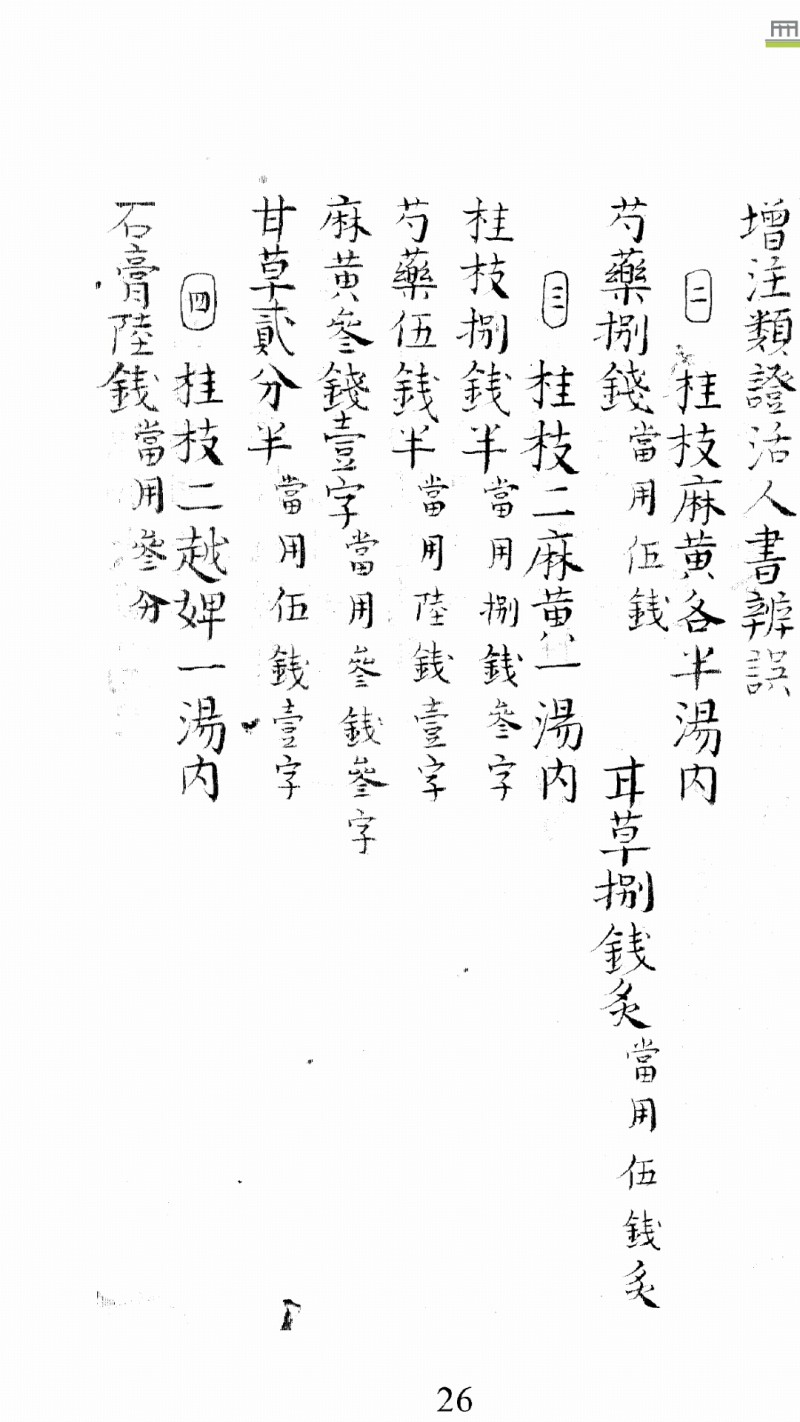 增注類證活人書辨誤
二 桂枝麻黃各半湯内
芍藥捌錢當用伍錢 甘草捌錢炙當用伍錢炙
三 桂枝二麻黃一湯内
桂枝捌錢半當用捌錢叄字
芍藥伍錢半當用陸錢壹字
麻黃叄錢壹字當用叄錢叄字
甘草貳分半當用伍錢壹字
四 桂枝二越婢一湯内
石膏陸錢當用叄分
26